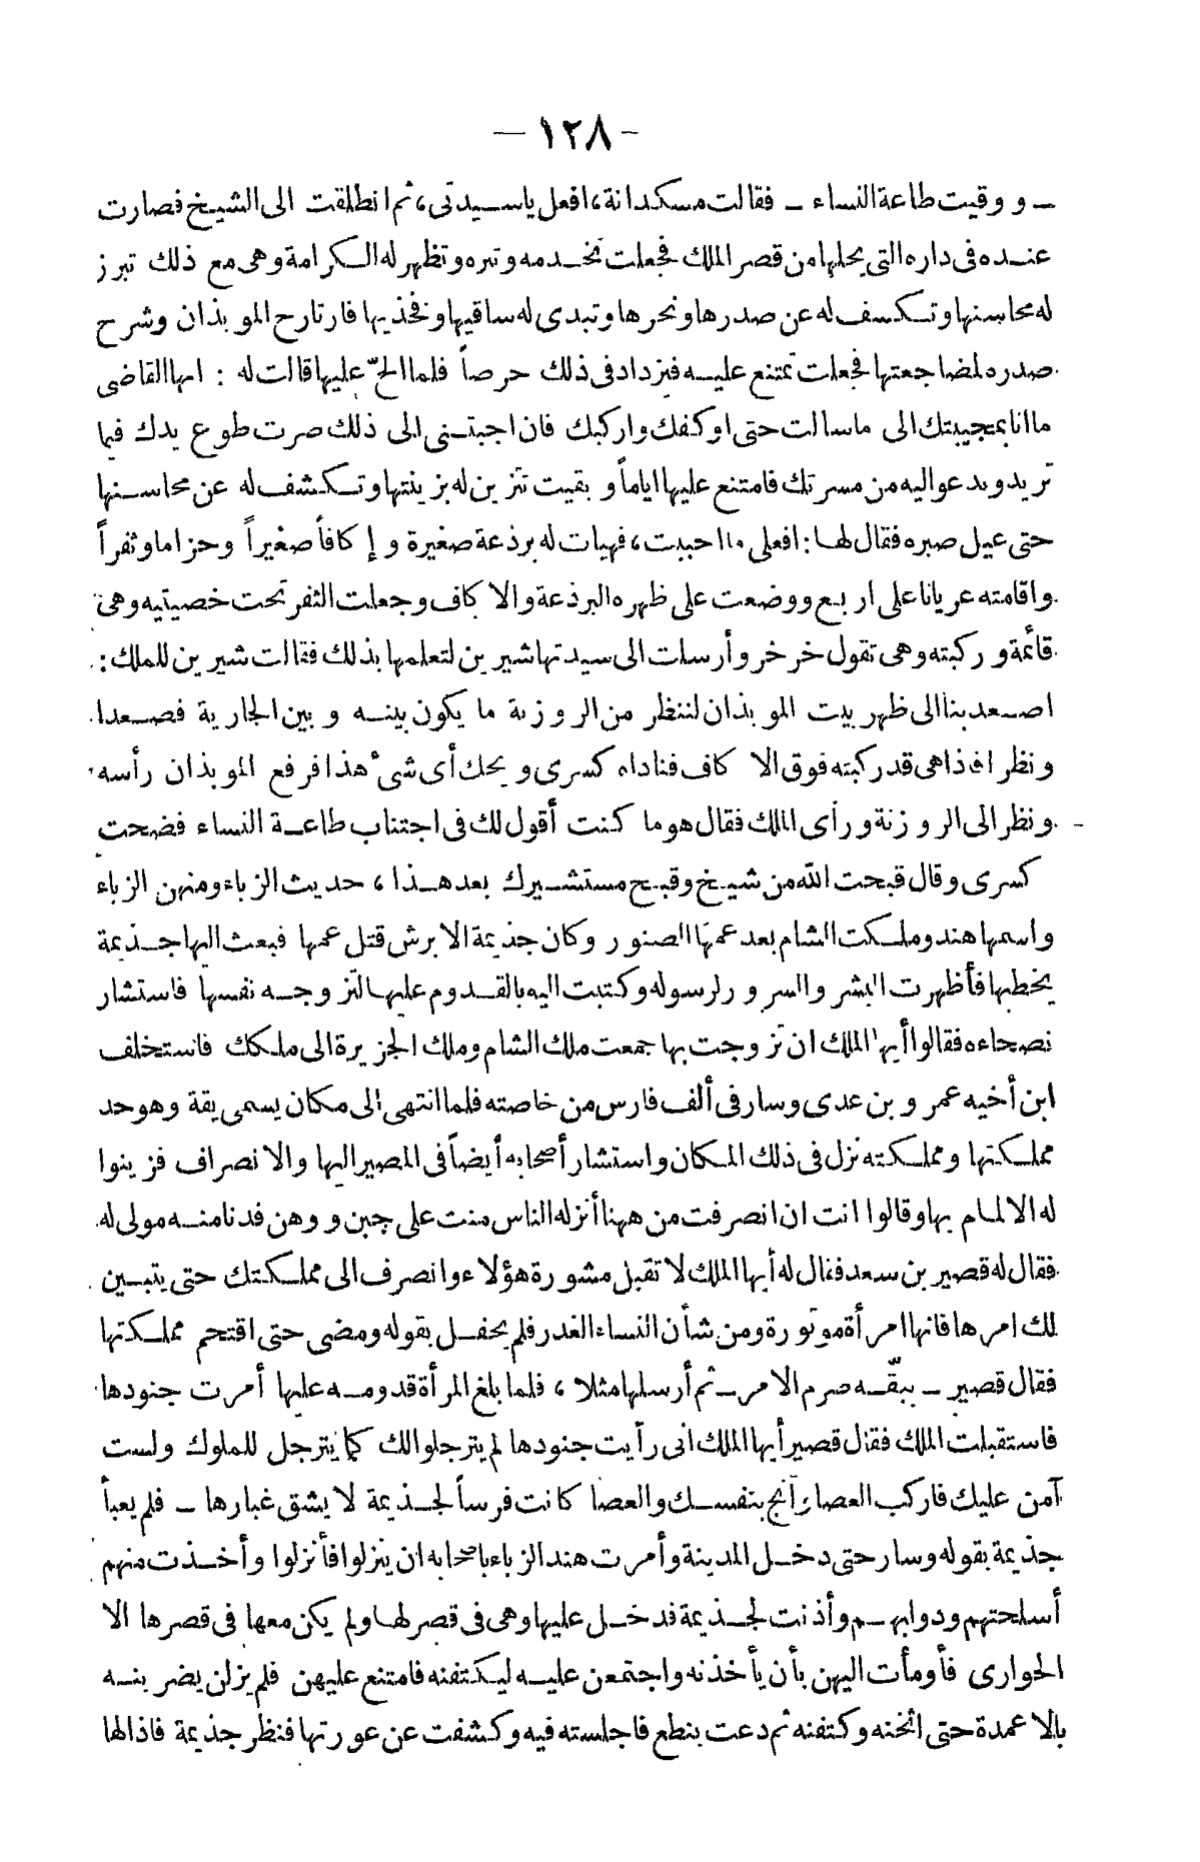 — ١٢٨ -
ـ ووقيت طاعة النساء ـ فقالت مسكدانة، افعل ياسيدتى، ثم انطلقت الى الشيخ فصارت
عنده فى داره التى يحلها من قصر الملك فجعلت تخدمه وتبره وتظهر له الكرامة وهى مع ذلك تبرز
له محاسنها وتكسف له عن صدرها ونحرها وتبدى له ساقيها وفخذيها فارتارح الموبذان وشرح
صدره لمضاجعتها فجعلت تمتنع عليه فيزداد فى ذلك حرصاً فلما الحّ عليها قالت له : ايها القاضى
ما انا بمجيبتك الى ماسالت حتى اوكفك واركبك فان اجبتنى الى ذلك صرت طوع يدك فيما
تريد وتدعو اليه من مسرتك فامتنع عليها اياماً و بقيت تتزين له بزينتها وتكشف له عن محاسنها
حتى عيل صبره فقال لها : افعلى ما احببت، فهيات له برذعة صغيرة و إكافاً صغيراً وحزاما وثفراً
واقامته عريانا على اربع ووضعت على ظهره البرذعة والاكاف وجعلت الثفر تحت خصيتيه وهى
قائمة وركبته وهى تقول خر خر وأرسلت الى سيدتها شيرين لتعلمها بذلك فقالت شيرين للملك :
اصعد بنا الى ظهر بيت الموبذان لننظر من الروزنة ما يكون بينه و بين الجارية فصعدا
ونظرا فاذا هى قد ركبته فوق الاكاف فناداه كسرى ويحك أى شىء هذا فرفع الموبذان رأسه
ونظر الى الروزنة ورأى الملك فقال هو ما كنت أقول لك فى اجتناب طاعة النساء فضحت
كسرى وقال قبحت الله من شيخ وقبح مستشيرك بعد هذا، حديث الزباء ومنهن الزباء
واسمها هند وملكت الشام بعد عمها الصنور وكان جذيمة الابرش قتل عمها فبعث اليها جذيمة
يخطبها فأظهرت البشر والسرور لرسوله وكتبت اليه بالقدوم عليها لتزوجه نفسها فاستشار
نصحاءه فقالوا أيها الملك ان تزوجت بها جمعت ملك الشام وملك الجزيرة الى ملكك فاستخلف
ابن أخيه عمرو بن عدى وسار فى ألف فارس من خاصته فلما انتهى الى مكان يسمى بقة وهو حد
مملكتها ومملكته نزل فى ذلك المكان واستشار أصحابه أيضاً فى المصير اليها والانصراف فزينوا
له الالمام بها وقالوا انت ان انصرفت من ههنا أنزله الناس منت على جبن ووهن فدنا منه مولى له
فقال له قصير بن سعد فقال له أيها الملك لا تقبل مشورة هؤلاء وانصرف الى مملكتك حتى يتبين
لك امرها فانها امرأة موتورة ومن شأن النساء الغدر فلم يحفل بقوله ومضى حتى اقتحم مملكتها
فقال قصير ـ ببقّه صرم الامر ـ ثم أرسلها مثلا، فلما بلغ المرأة قدومه عليها أمرت جنودها
فاستقبلت الملك فقال قصير أيها الملك انى رآيت جنودها لم يترجلوا لك كما يترجل للملوك ولست
آمن عليك فاركب العصا وآنج بنفسك والعصا كانت فرساً لجذيمة لا يشق غبارها ـ فلم يعبأ
جذيمة بقوله وسار حتى دخل المدينة وأمرت هند الزباء باصحابه ان ينزلوا فأنزلوا وأخذت منهم
أسلحتهم ودوابهم وأذنت لجذيمة فدخل عليها وهى فى قصر لها ولم يكن معها فى قصرها الا
الجوارى فأومأت اليهن بأن يأخذنه واجتمعن عليه ليكتفنه فامتنع عليهن فلم يزلن يضربنه
بالاعمدة حتى اثخنه وكتفنه ثم دعت بنطع فاجلسته فيه وكشفت عن عورتها فنظر جذيمة فاذا لها